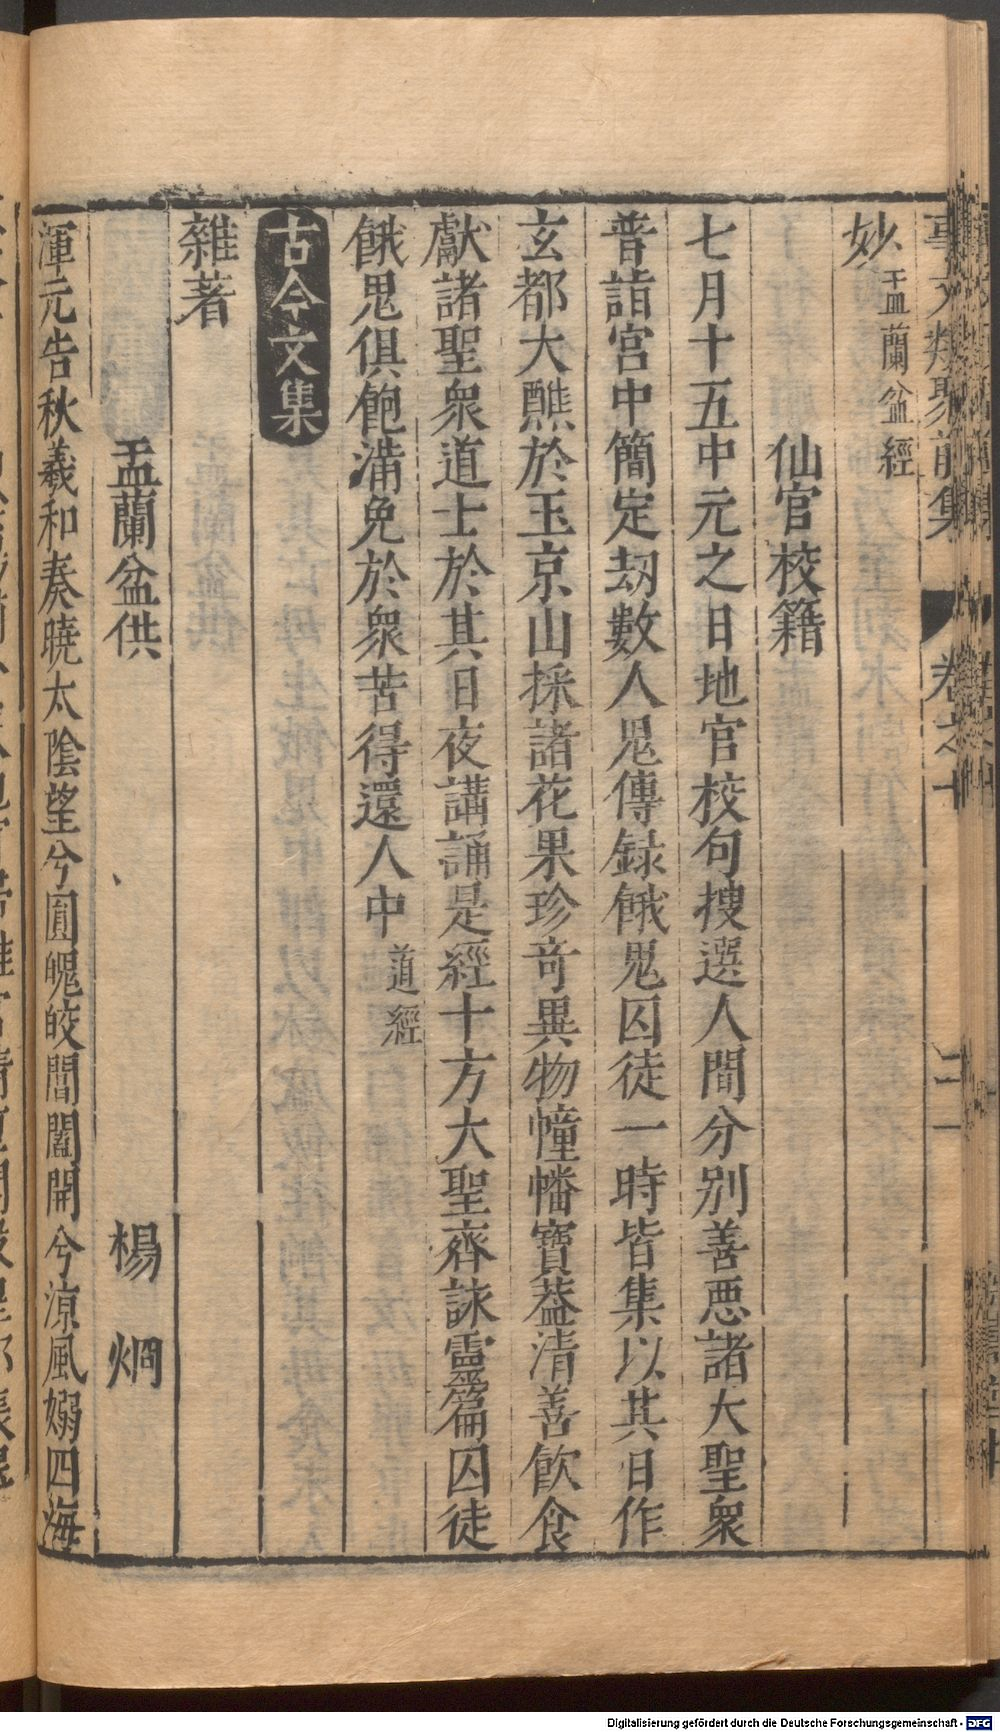 事文類聚前集 卷之十
妙盂蘭盆經
仙官校籍
七月十五中元之日地官校句搜選人間分别善惡諸大聖衆
普詣宮中簡定刼數人鬼傳録餓鬼囚徒一時皆集以其日作
玄都大醮於玉京山採諸花果珍竒異物幢幡寳葢清善飲食
獻諸聖衆道士於其日夜講誦是經十方大聖齊詠靈篇囚徒
餓鬼俱飽滿免於衆苦得還人中道經
古今文集
雜著
盂蘭盆供 楊烱
渾元告秋羲和奏曉太陰望兮圓魄皎閶闔開兮涼風嫋四海
Digitalisierung gefördert durch die Deutsche Forschungsgemeinschaft - DFG